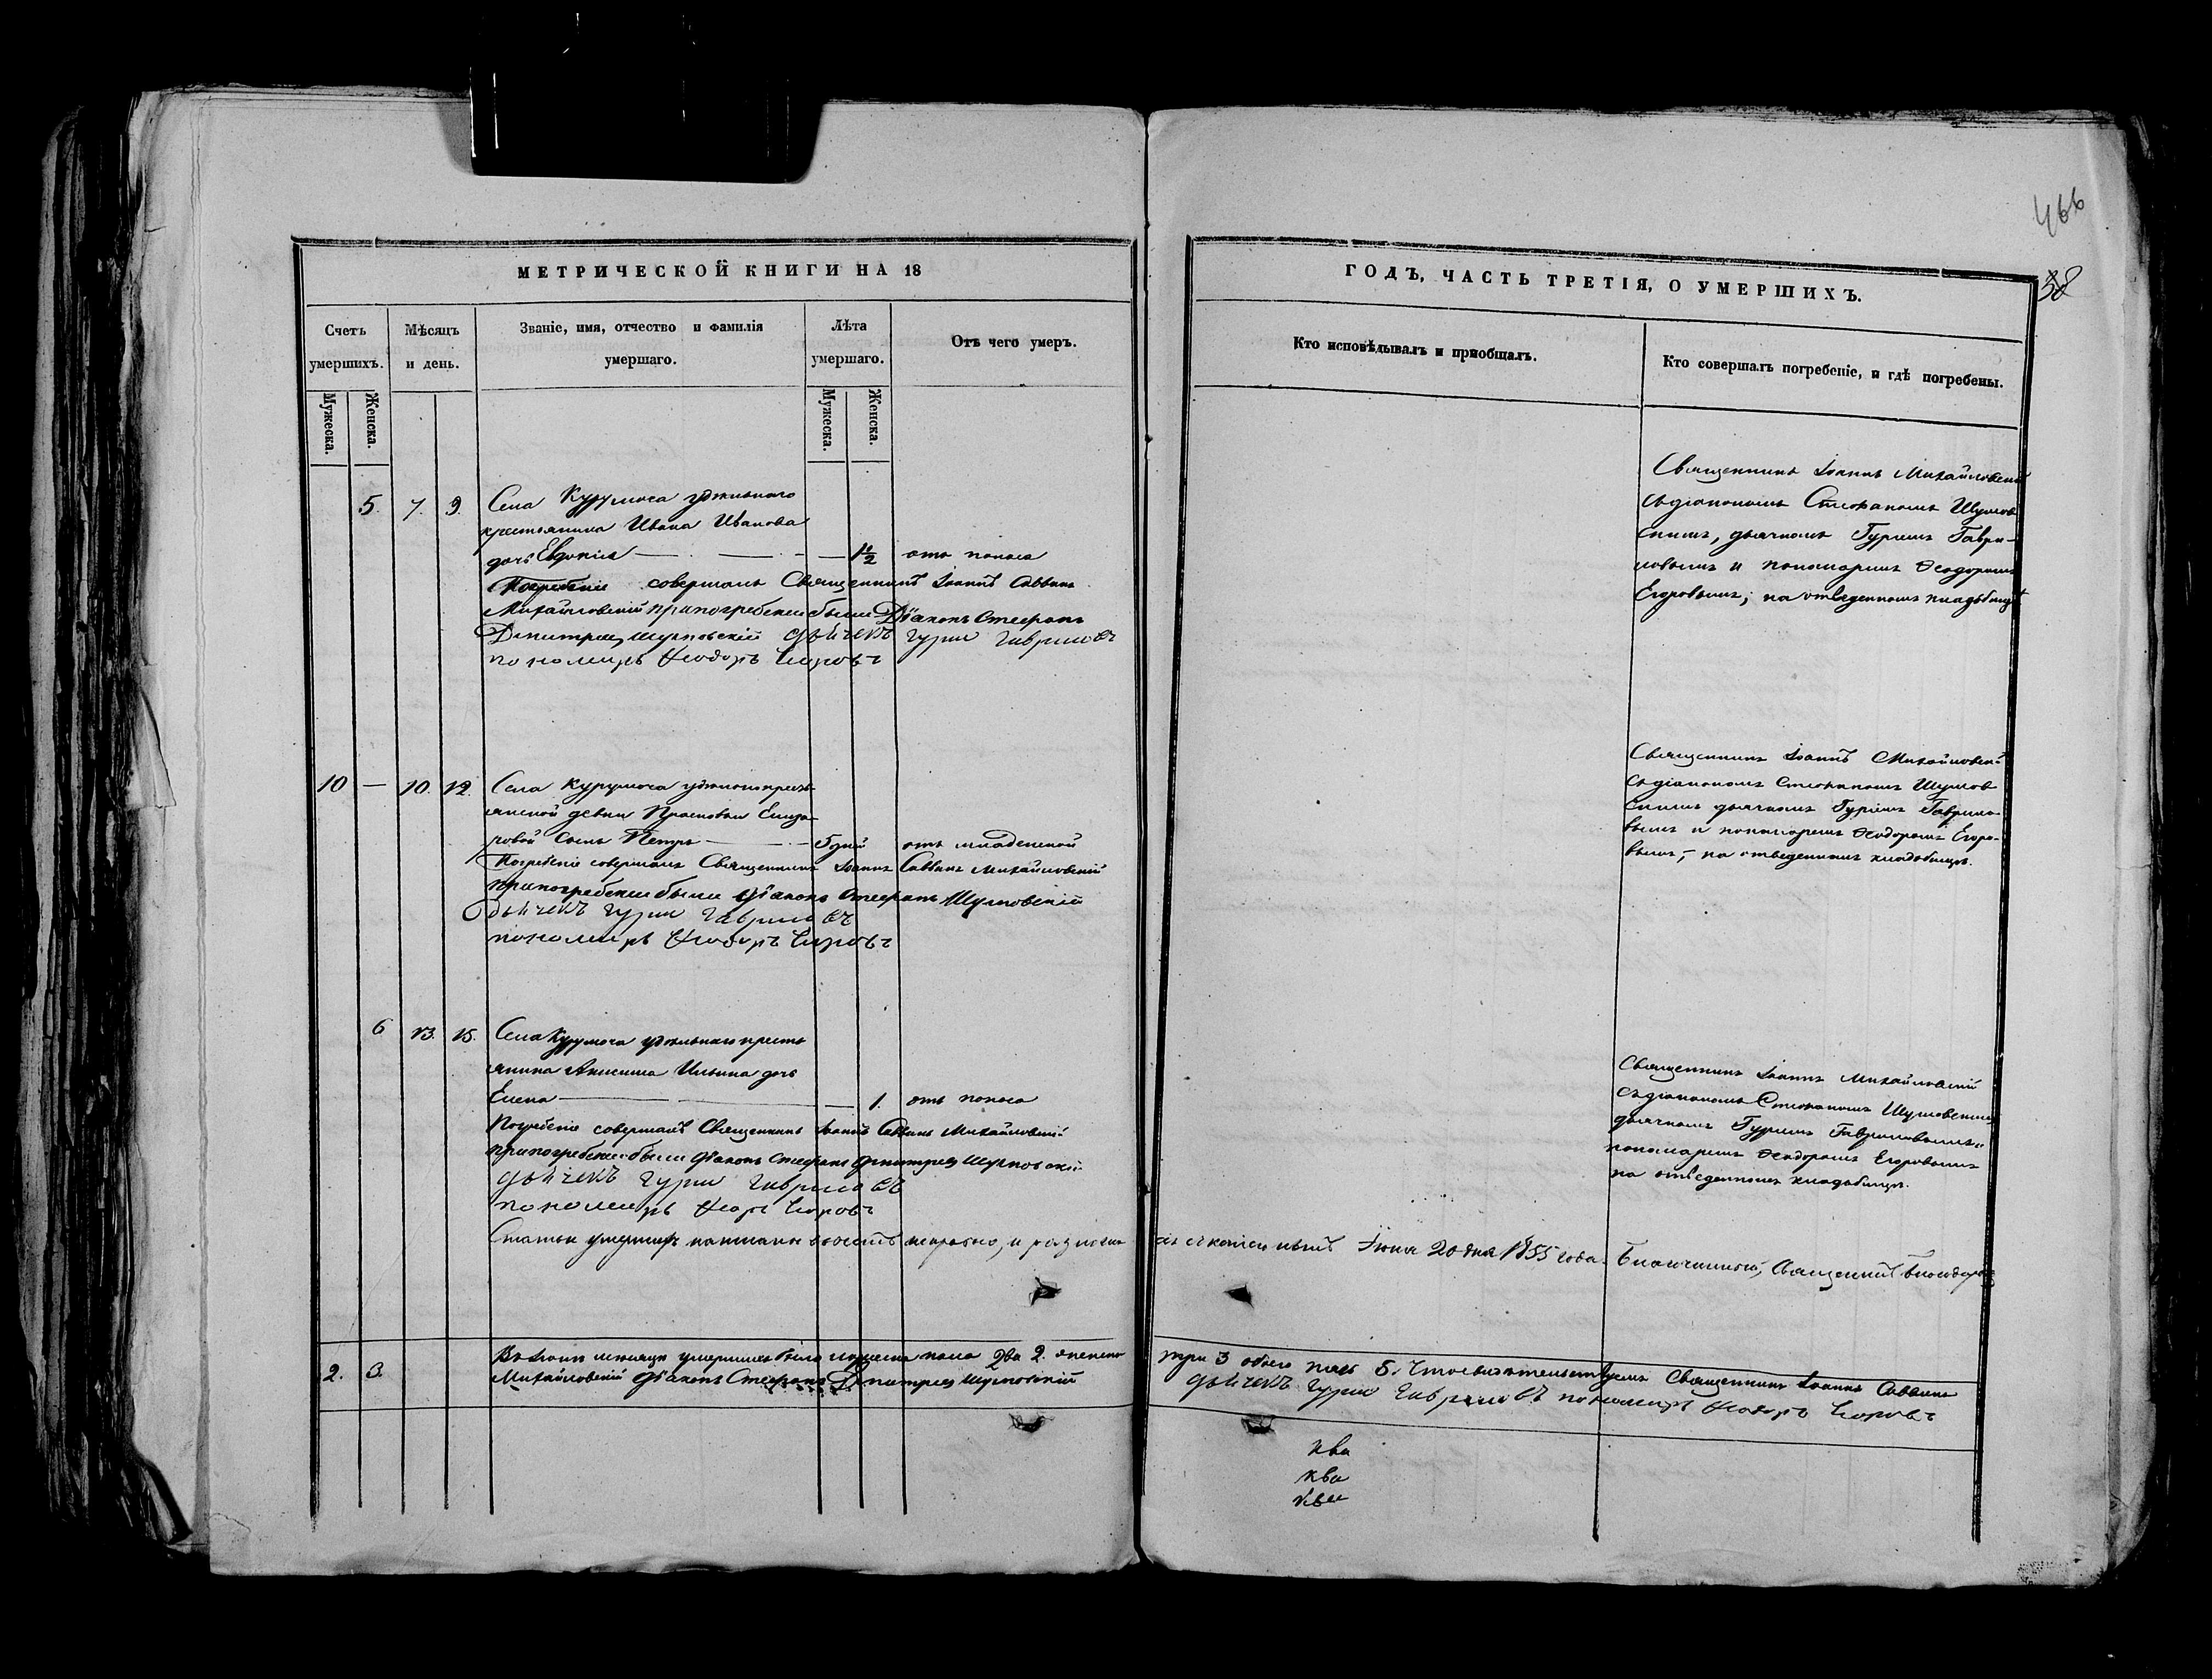 466
38
МЕТРИЧЕСКОЙ КНИГИ НА 18
ГОДЪ, ЧАСТЬ ТРЕТІЯ, О УМЕРШИХЪ.
Счетъ умершихъ.
Мѣсяцъ и день.
Званіе, имя, отчество и фамилія умершаго.
Лѣта умершаго.
Отъ чего умеръ.
Кто исповѣдывалъ и пріобщалъ.
Кто совершалъ погребеніе, и гдѣ погребены.
Мужеска.
Женска.
Мужеска.
Женска.
5. 7. 9. Села Курумоча удѣльнаго
крестьянина Ивана Иванова
дочь Евдокія — 1½ отъ поноса
Погребеніе совершалъ Священникъ Іоаннъ Саввинъ
Михайловскій при погребеніи были Діаконъ Стефанъ
Дмитріев Шумовскій дьячекъ Гурій Гавриловъ
пономарь Ѳеодоръ Егоровъ
Священникъ Іоаннъ Михайловскій
съ діакономъ Стефаномъ Шумов
скимъ, дьячкомъ Гуріемъ Гаври-
ловымъ и пономаремъ Ѳеодоромъ
Егоровымъ; на отведенномъ кладбищѣ
10 — 10. 12. Села Курумоча удѣльной кресть
янской девки Прасковьи Елиза-
ровой сынъ Петръ — 5 дней отъ младенской
Погребеніе совершалъ Священникъ Іоаннъ Саввинъ Михайловскій
при погребеніи были діаконъ Стефанъ Шумовскій
дьячекъ Гурій Гавриловъ
пономарь Ѳеодоръ Егоровъ
Священникъ Іоаннъ Михайловскій
съ діакономъ Стефаномъ Шумов
скимъ дьячкомъ Гуріемъ Гаврило-
вымъ и пономаремъ Ѳеодоромъ Егоро-
вымъ, — на отведенномъ кладбищѣ.
6 13. 15. Села Курумоча удѣльнаго кресть
янина Анисима Ильина дочь
Елена — 1. отъ поноса
Погребеніе совершалъ Священникъ Іоаннъ Саввинъ Михайловскій
при погребеніи были діаконъ Стефанъ Дмитріев Шумовскій
дьячекъ Гурій Гавриловъ
пономарь Ѳеодоръ Егоровъ
Священникъ Іоаннъ Михайловскій
съ діакономъ Стефаномъ Шумовскимъ
дьячкомъ Гуріемъ Гавриловымъ и
пономаремъ Ѳеодоромъ Егоровымъ
на отведенномъ кладбищѣ.
Статьи умершихъ написаны исправно, и съ копіею нѣтъ Іюня 20 дня 1855 года. Благочинный, Священникъ
2. 3. Въ Іюнѣ мѣсяцѣ умершихъ было мужеска пола два 2. женска три 3 обоего пять 5. Что свидѣтельствуемъ Священникъ Іоаннъ Саввинъ
Михайловскій діаконъ Стефанъ Дмитріев Шумовскій дьячекъ Гурій Гавриловъ пономарь Ѳеодоръ Егоровъ